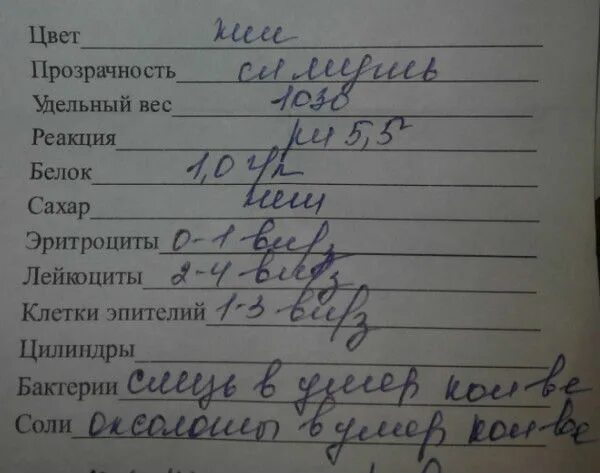 Цвет
Прозрачность сл мутнь
Удельный вес 1030
Реакция рн 5,5
Белок 1,0 г/л
Сахар
Эритроциты 0-1 в п/з
Лейкоциты 2-4 в п/з
Клетки эпителий 1-3 в п/з
Цилиндры
Бактерии слизь в умер кол-ве
Соли оксолаты в умер кол-ве